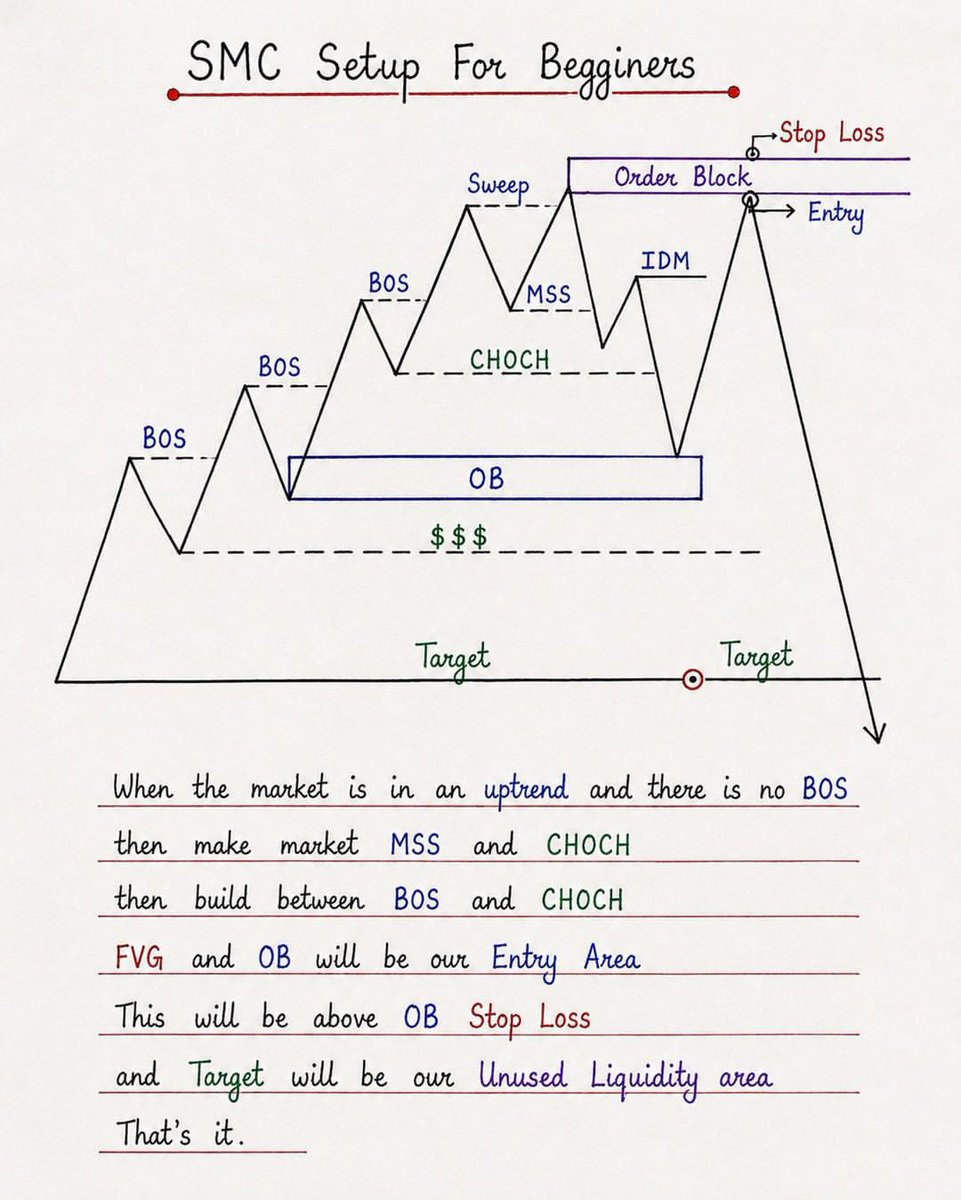 SMC Setup For Begginers
Stop Loss
Order Block
Sweep
Entry
IDM
BOS
MSS
CHOCH
BOS
BOS
OB
$$$
Target
Target
When the market is in an uptrend and there is no BOS
then make market MSS and CHOCH
then build between BOS and CHOCH
FVG and OB will be our Entry Area
This will be above OB Stop Loss
and Target will be our Unused Liquidity area
That's it.